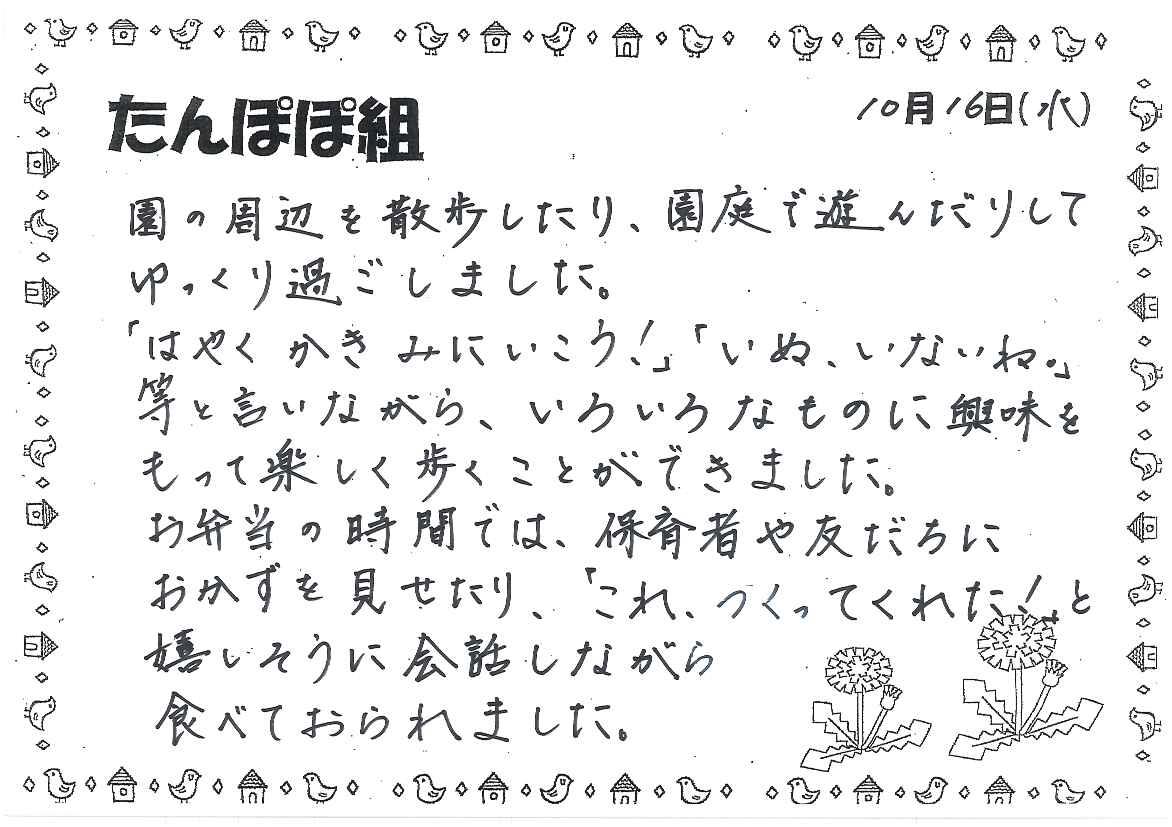 たんぽぽ組
10月16日(水)
園の周辺を散歩したり、園庭で遊んだりして
ゆっくり過ごしました。
「はやくかきみにいこう!」「いぬ、いないね。」
等と言いながら、いろいろなものに興味を
もって楽しく歩くことができました。
お弁当の時間では、保育者や友だちに
おかずを見せたり、「これ、つくってくれた!」と
嬉しそうに会話しながら
食べておられました。